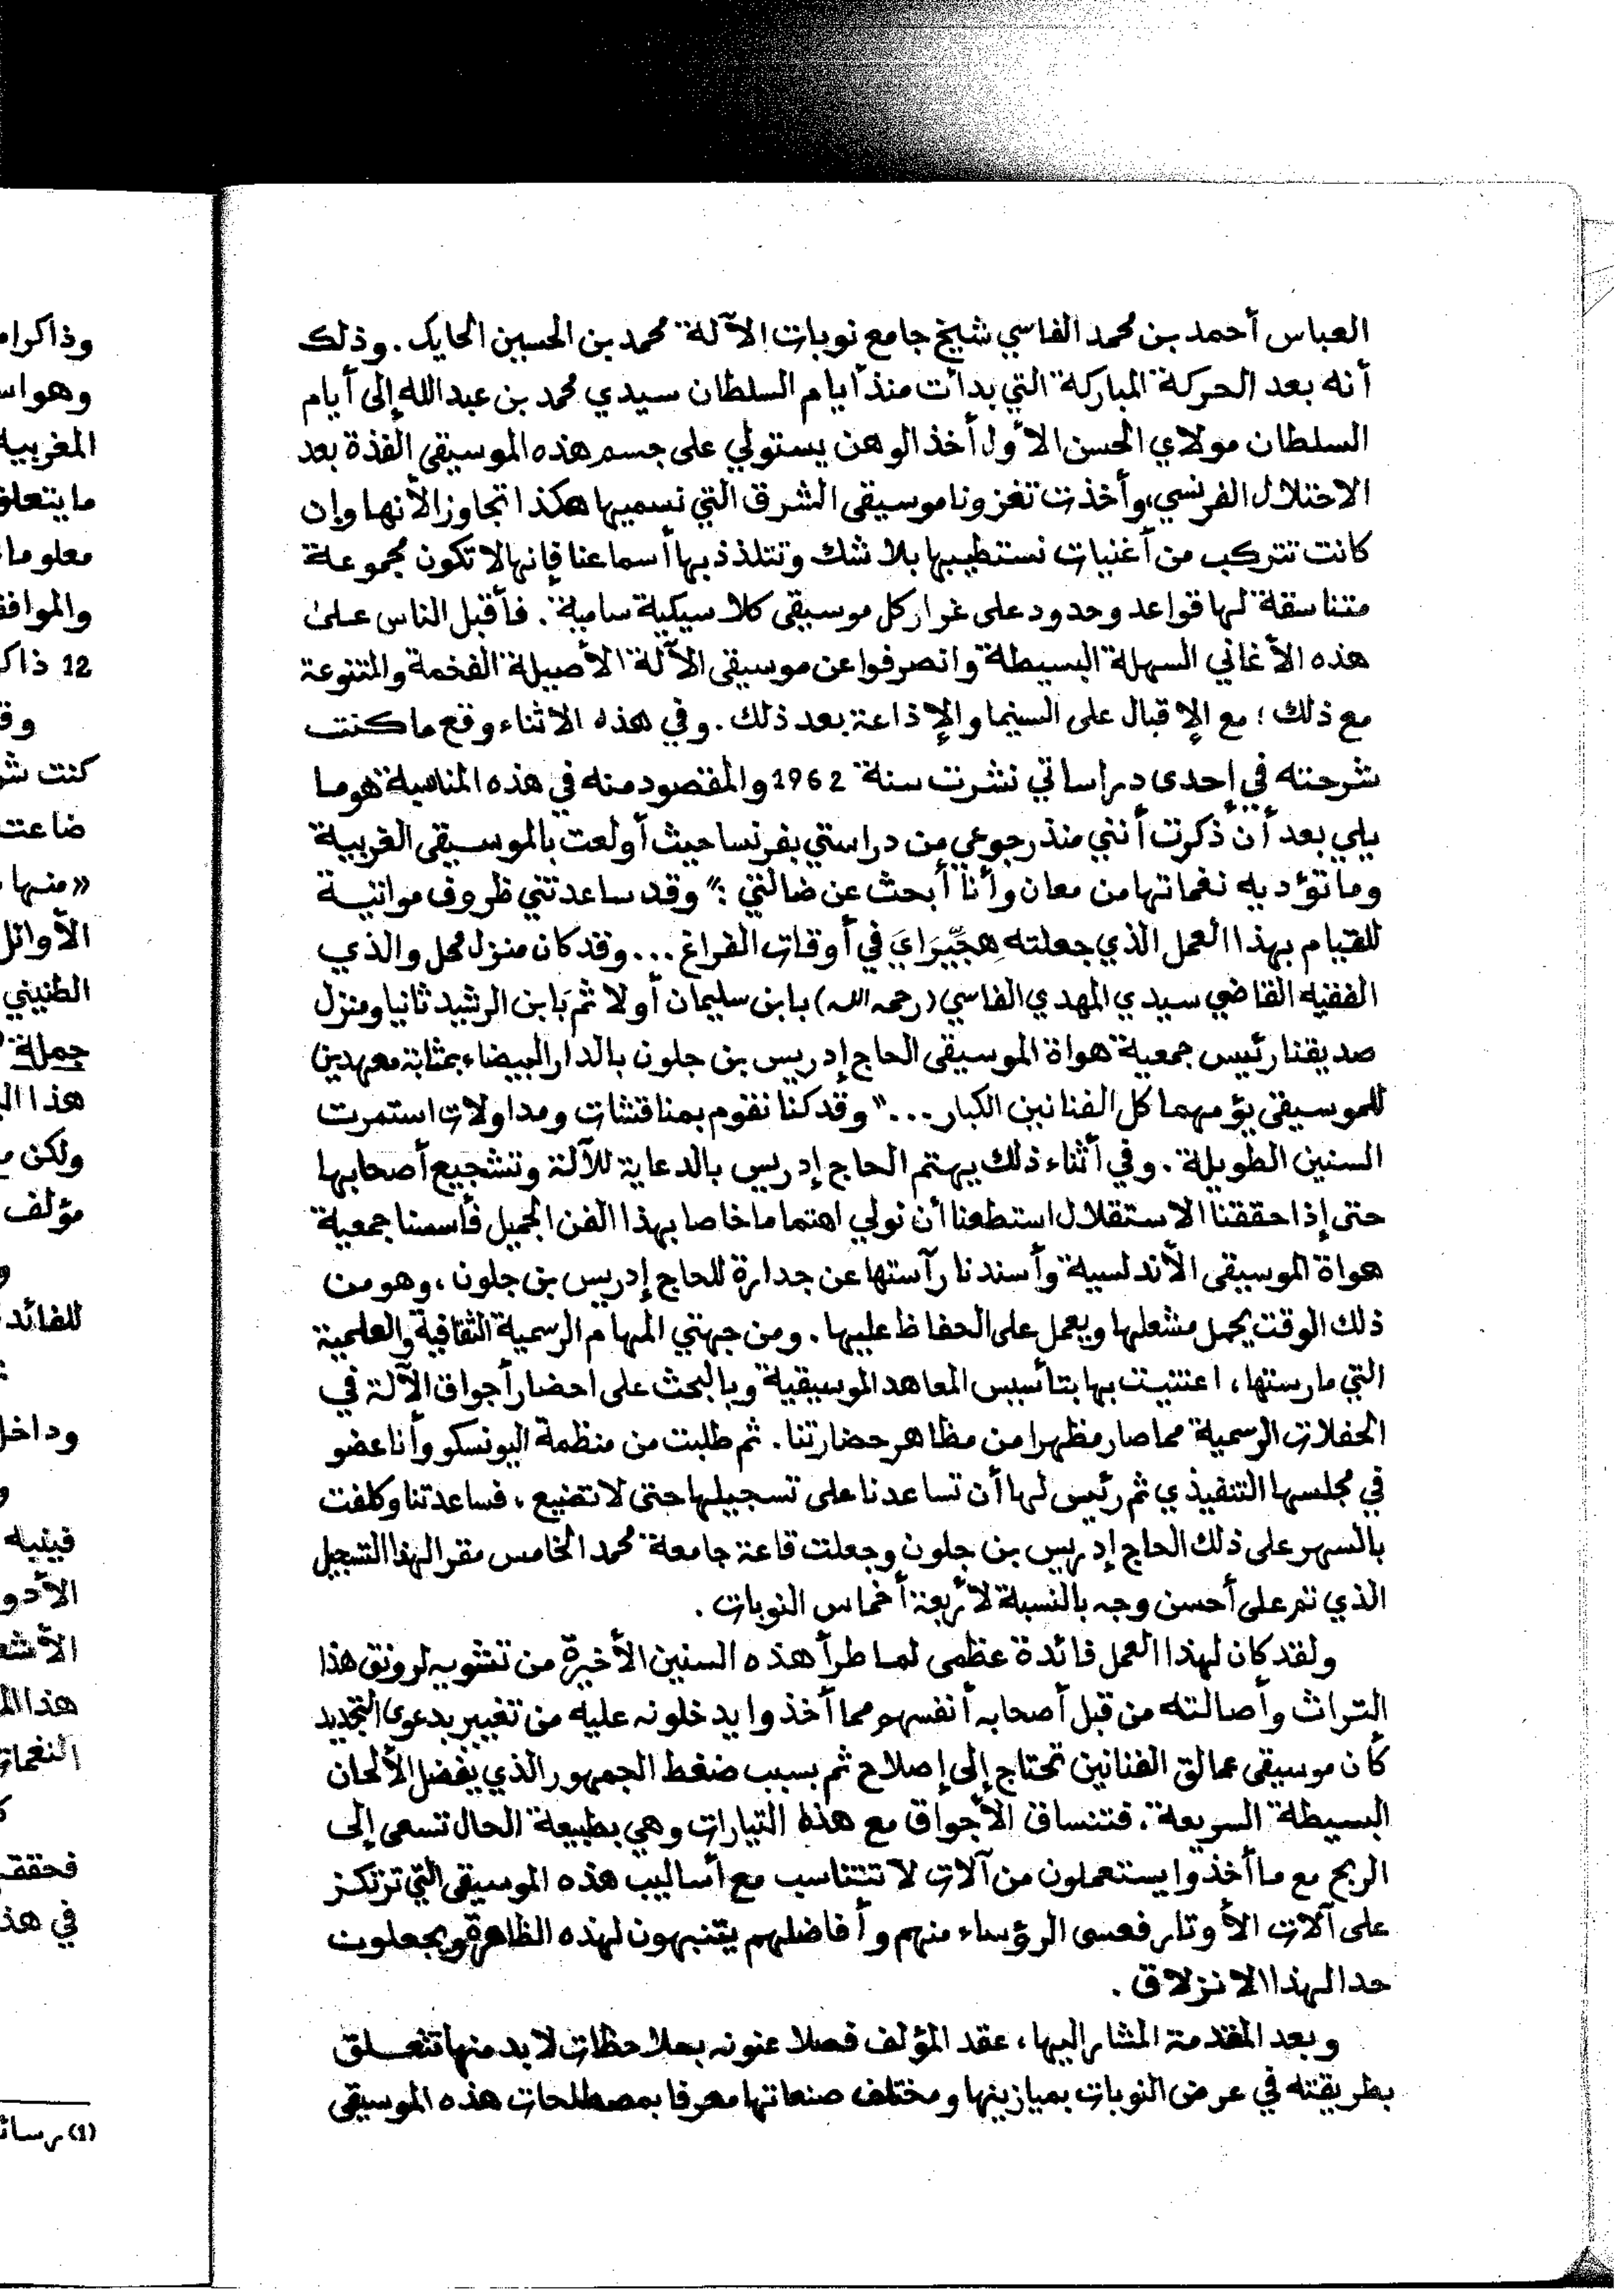 العباس أحمد بن محمد الفاسي شيخ جامع نوبات الآلة محمد بن الحسين الحايك . وذلك
أنه بعد الحركة المباركة التي بدأت منذ أيام السلطان سيدي محمد بن عبد الله إلى أيام
السلطان مولاي الحسن الأول أخذ الوهن يستولي على جسم هذه الموسيقى الفذة بعد
الاحتلال الفرنسي، وأخذت تغزونا موسيقى الشرق التي نسميها هكذا تجاوزا لأنها وإن
كانت تتركب من أغنيات نستطيبها بلا شك وتتلذذ بها أسماعنا فإنها لا تكون مجموعة
متناسقة لها قواعد وحدود على غرار كل موسيقى كلاسيكية سامية . فأقبل الناس على
هذه الأغاني السهلة البسيطة وانصرفوا عن موسيقى الآلة الأصيلة الفخمة والمتنوعة
مع ذلك ؛ مع الإقبال على السينما والإذاعة بعد ذلك . وفي هذه الاثناء وقع ما كنت
شرحته في إحدى دراساتي نشرت سنة 1962 والمقصود منه في هذه المناسبة هو ما
يلي بعد أن ذكرت أنني منذ رجوعي من دراستي بفرنسا حيث أولعت بالموسيقى الغربية
وما تؤديه نغماتها من معان وأنا أبحث عن ضالتي : " وقد ساعدتني ظروف مواتية
للقيام بهذا العمل الذي جعلته هجيراي في أوقات الفراغ ... وقد كان منزل محل والذي
الفقيه القاضي سيدي المهدي الفاسي (رحمه الله) بابن سليمان أولا ثم بابن الرشيد ثانيا ومنزل
صديقنا رئيس جمعية هواة الموسيقى الحاج إدريس بن جلون بالدار البيضاء بمثابة معهدين
للموسيقى يؤمهما كل الفنانين الكبار ... " وقد كنا نقوم بمناقشات ومداولات استمرت
السنين الطويلة . وفي أثناء ذلك يهتم الحاج إدريس بالدعاية للآلة وتشجيع أصحابها
حتى إذا حققنا الاستقلال استطعنا أن نولي اهتماما خاصا بهذا الفن الجميل فأسسنا جمعية
هواة الموسيقى الأندلسية وأسندنا رآستها عن جدارة للحاج إدريس بن جلون ، وهو من
ذلك الوقت يحمل مشعلها ويعمل على الحفاظ عليها . ومن جهتي المهام الرسمية الثقافية والعلمية
التي مارستها ، اعتنيت بها بتأسيس المعاهد الموسيقية وبالبحث على احضار أجواق الآلة في
الحفلات الرسمية مما صار مظهرا من مظاهر حضارتنا . ثم طلبت من منظمة اليونسكو وأنا عضو
في مجلسها التنفيذي ثم رئيس لها أن تساعدنا على تسجيلها حتى لا تضيع ، فساعدتنا وكلفت
بالسهر على ذلك الحاج إدريس بن جلون وجعلت قاعة جامعة محمد الخامس مقرا لهذا التسجيل
الذي تم على أحسن وجه بالنسبة لأربعة أخماس النوبات .
ولقد كان لهذا العمل فائدة عظمى لما طرأ هذه السنين الأخيرة من تشويه لرونق هذا
التراث وأصالته من قبل أصحابه أنفسهم مما أخذوا يدخلونه عليه من تغيير بدعوى التجديد
كأن موسيقى عمالق الفنانين تحتاج إلى إصلاح ثم بسبب ضغط الجمهور الذي يفضل الألحان
البسيطة السريعة . فتنساق الأجواق مع هذه التيارات وهي بطبيعة الحال تسعى إلى
الربح مع ما أخذوا يستعملون من آلات لا تتناسب مع أساليب هذه الموسيقى التي ترتكز
على آلات الأوتار فعسى الرؤساء منهم وأفاضلهم يتنبهون لهذه الظاهرة ويجعلون
حدا لهذا الانزلاق .
وبعد المقدمة المشار إليها ، عقد المؤلف فصلا عنونه بملاحظات لابد منها تتعلق
بطريقته في عرض النوبات بميازينها ومختلف صنعاتها معرفا بمصطلحات هذه الموسيقى
وهوا
المغربية
ما يتعلق
12 ذاك
ضاعت
« منها
الأوائل
الطنيني
جملة
ولكن
مؤلف
وداخل
فينيه
النغمات
(1) رسائ